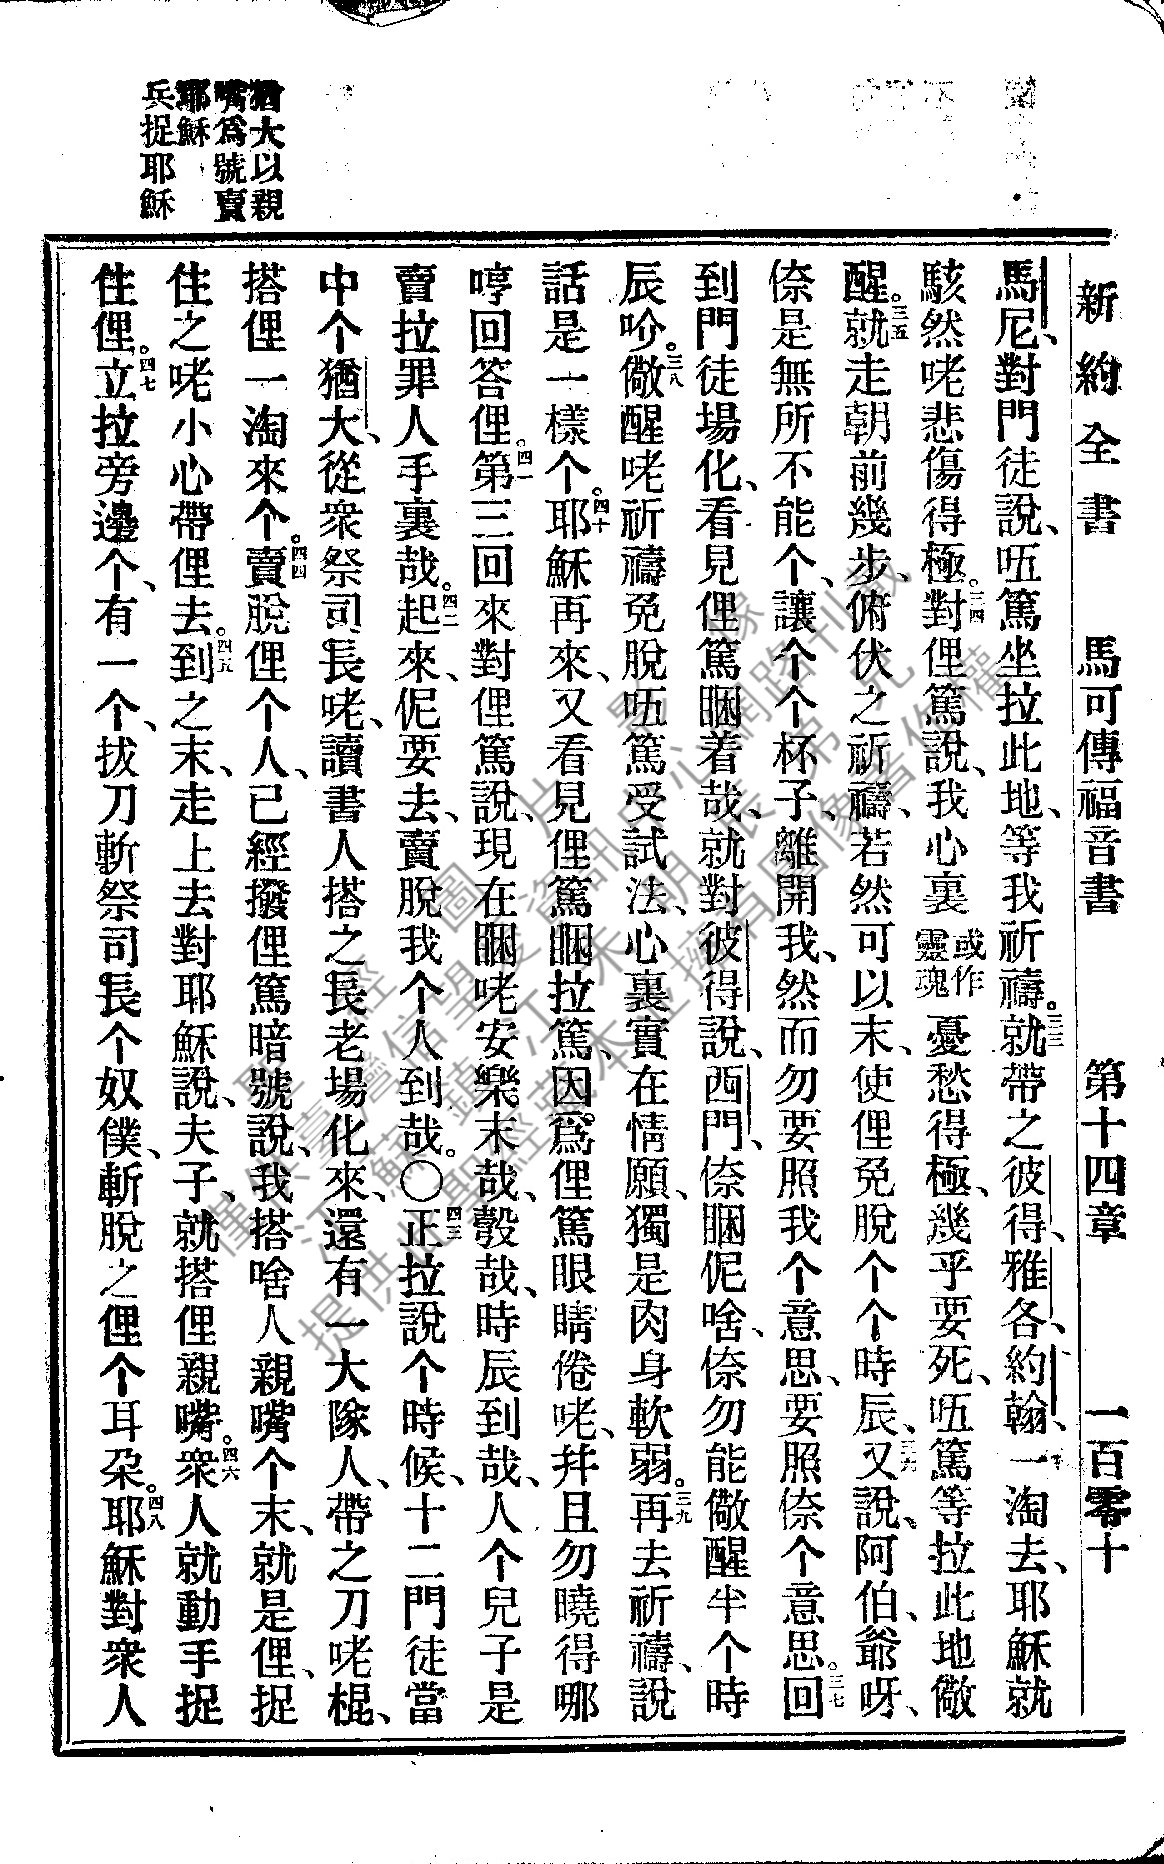 新約全書 馬可傳福音書 第十四章 一百零十
馬尼、對門徒說、㕶篤坐拉此地、等我祈禱。三三就帶之彼得、雅各、約翰、一淘去、耶穌就
駭然咾悲傷得極。三四對俚篤說、我心裏或作靈魂憂愁得極、幾乎要死、㕶篤等拉此地儆
醒。三五就走朝前幾步、俯伏之祈禱、若然可以末、使俚免脫个个時辰、三六又說、阿伯、爺呀、
倷是無所不能个、讓个个杯子、離開我、然而勿要照我个意思、要照倷个意思。三七回
到門徒場化、看見俚篤睏着哉、就對彼得說、西門、倷睏伲啥、倷勿能儆醒半个時
辰吤。三八儆醒咾祈禱免脫㕶篤受試法、心裏實在情願、獨是肉身軟弱。三九再去祈禱、說
話是一樣个。四十耶穌再來、又看見俚篤睏拉篤、因爲俚篤眼睛倦咾、幷且勿曉得哪
哼回答俚。四一第三回來對俚篤說、現在睏咾安樂末哉、彀哉、時辰到哉、人个兒子是
賣拉罪人手裏哉。四二起來、伲要去、賣脫我个人到哉。〇四三正拉說个時候、十二門徒當
中个猶大、從衆祭司長咾、讀書人搭之長老場化來、還有一大隊人、帶之刀咾棍、
搭俚一淘來个。四四賣脫俚个人、已經撥俚篤暗號說、我搭啥人親嘴个末、就是俚、捉
住之咾小心帶俚去。四五到之末、走上去對耶穌說、夫子、就搭俚親嘴。四六衆人就動手捉
住俚。四七立拉旁邊个、有一个、拔刀斬祭司長个奴僕、斬脫之俚个耳朶。四八耶穌對衆人
猶大以親
嘴爲號賣
耶穌
兵捉耶穌